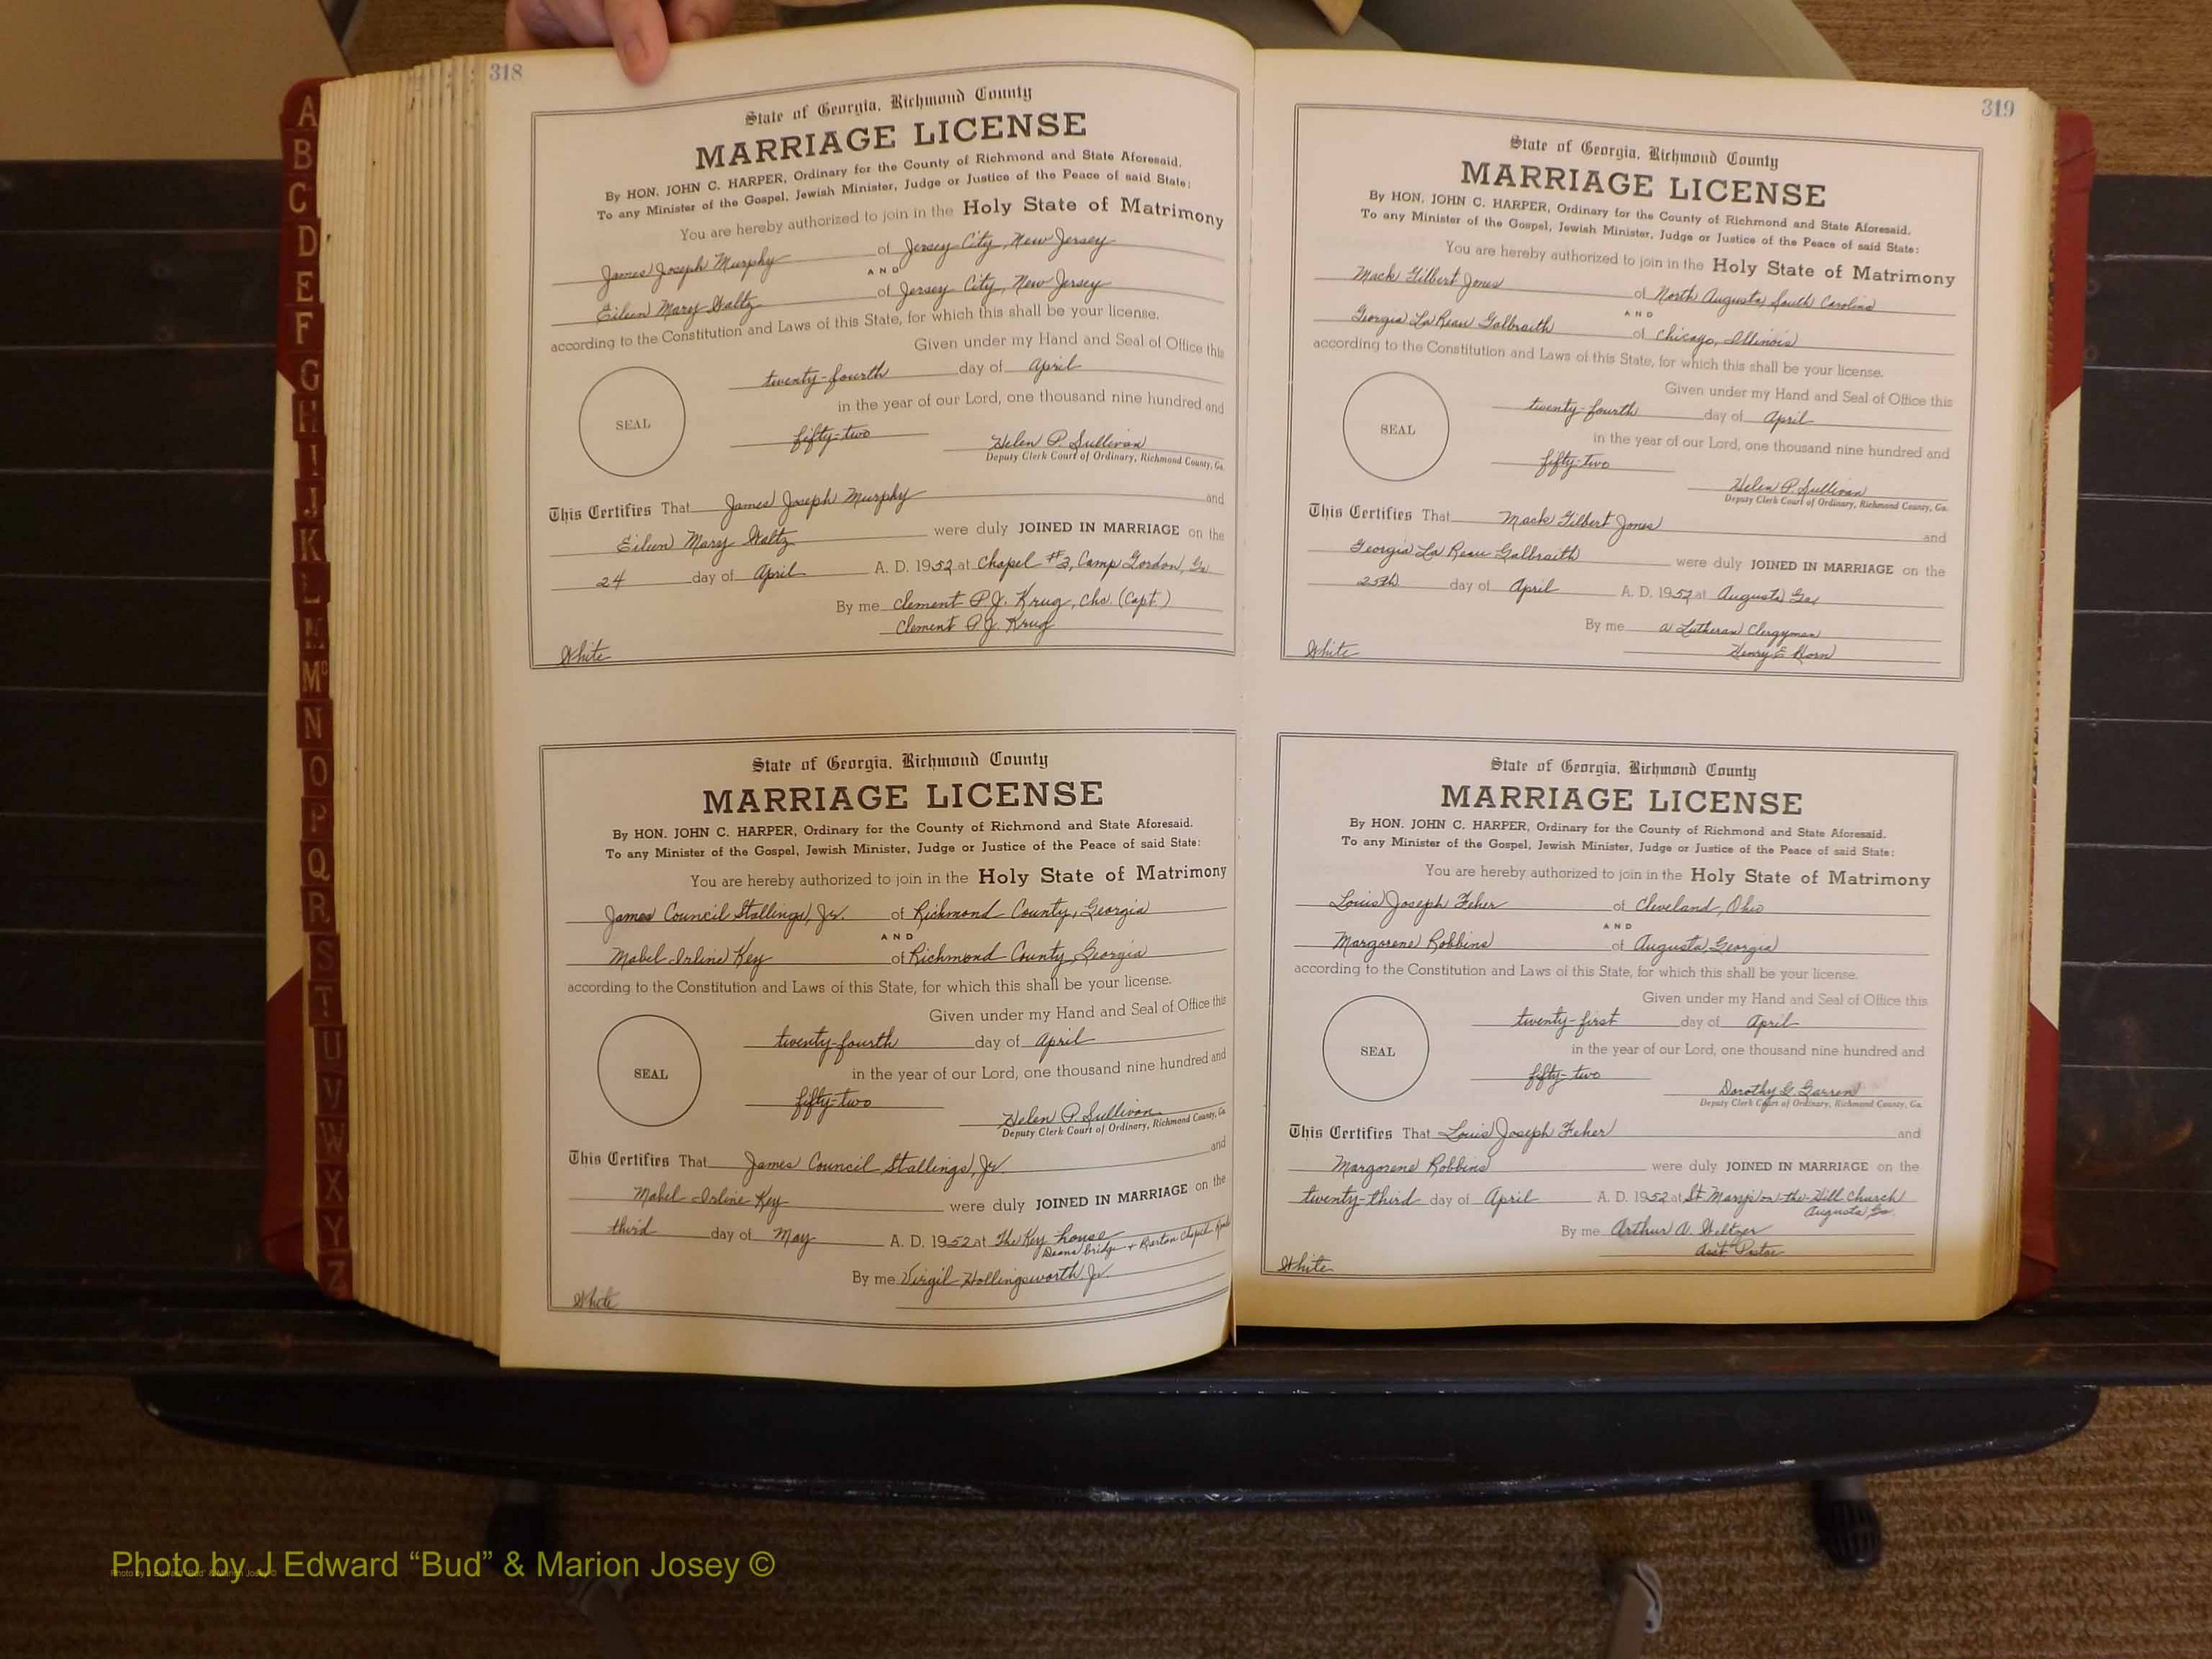 318
State of Georgia, Richmond County
MARRIAGE LICENSE
By HON. JOHN C. HARPER, Ordinary for the County of Richmond and State Aforesaid.
To any Minister of the Gospel, Jewish Minister, Judge or Justice of the Peace of said State:
You are hereby authorized to join in the Holy State of Matrimony
James Joseph Murphy of Jersey City, New Jersey
AND
Eileen Mary Waltz of Jersey City, New Jersey
according to the Constitution and Laws of this State, for which this shall be your license.
Given under my Hand and Seal of Office this
twenty-fourth day of April
in the year of our Lord, one thousand nine hundred and
SEAL
fifty-two
Helen P. Sullivan
Deputy Clerk Court of Ordinary, Richmond County, Ga.
This Certifies That James Joseph Murphy and
Eileen Mary Waltz were duly JOINED IN MARRIAGE on the
24 day of April A. D. 1952 at Chapel #3, Camp Gordon, Ga
By me Clement P.J. Krug, Cha (Capt.)
Clement P.J. Krug
White
State of Georgia, Richmond County
MARRIAGE LICENSE
By HON. JOHN C. HARPER, Ordinary for the County of Richmond and State Aforesaid.
To any Minister of the Gospel, Jewish Minister, Judge or Justice of the Peace of said State:
You are hereby authorized to join in the Holy State of Matrimony
James Council Stallings, Jr. of Richmond County, Georgia
AND
Mabel Irline Key of Richmond County, Georgia
according to the Constitution and Laws of this State, for which this shall be your license.
Given under my Hand and Seal of Office this
twenty-fourth day of April
in the year of our Lord, one thousand nine hundred and
SEAL
fifty-two
Helen P. Sullivan
Deputy Clerk Court of Ordinary, Richmond County, Ga
This Certifies That James Council Stallings, Jr. and
Mabel Irline Key were duly JOINED IN MARRIAGE on the
third day of May A. D. 1952 at The Key house
Deans Bridge + Barton Chapel Road
By me Virgil Hollingsworth, Jr.
White
319
State of Georgia, Richmond County
MARRIAGE LICENSE
By HON. JOHN C. HARPER, Ordinary for the County of Richmond and State Aforesaid.
To any Minister of the Gospel, Jewish Minister, Judge or Justice of the Peace of said State:
You are hereby authorized to join in the Holy State of Matrimony
Mack Gilbert Jones of North Augusta, South Carolina
AND
Georgia La Reau Galbraith of Chicago, Illinois
according to the Constitution and Laws of this State, for which this shall be your license.
Given under my Hand and Seal of Office this
twenty-fourth day of April
in the year of our Lord, one thousand nine hundred and
SEAL
fifty-two
Helen P. Sullivan
Deputy Clerk Court of Ordinary, Richmond County, Ga.
This Certifies That Mack Gilbert Jones and
Georgia La Reau Galbraith were duly JOINED IN MARRIAGE on the
25th day of April A. D. 1952 at Augusta Ga,
By me a Lutheran Clergyman
Henry E Horn
White
State of Georgia, Richmond County
MARRIAGE LICENSE
By HON. JOHN C. HARPER, Ordinary for the County of Richmond and State Aforesaid.
To any Minister of the Gospel, Jewish Minister, Judge or Justice of the Peace of said State:
You are hereby authorized to join in the Holy State of Matrimony
Louis Joseph Feher of Cleveland, Ohio
AND
Margorene Robbins of Augusta, Georgia
according to the Constitution and Laws of this State, for which this shall be your license.
Given under my Hand and Seal of Office this
twenty-first day of April
in the year of our Lord, one thousand nine hundred and
SEAL
fifty-two
Dorothy G. Garren
Deputy Clerk Court of Ordinary, Richmond County, Ga.
This Certifies That Louis Joseph Feher and
Margorene Robbins were duly JOINED IN MARRIAGE on the
twenty-third day of April A. D. 1952 at St Mary's on-the-Hill Church
Augusta Ga.
By me Arthur A. Weltzer
Asst Pastor
White
A
B
C
D
E
F
G
H
I
J
K
L
M
Mc
N
O
P
Q
R
S
T
U
V
W
X
Y
Z
Photo by J Edward “Bud” & Marion Josey ©
Photo by J Edward “Bud” & Marion Josey ©